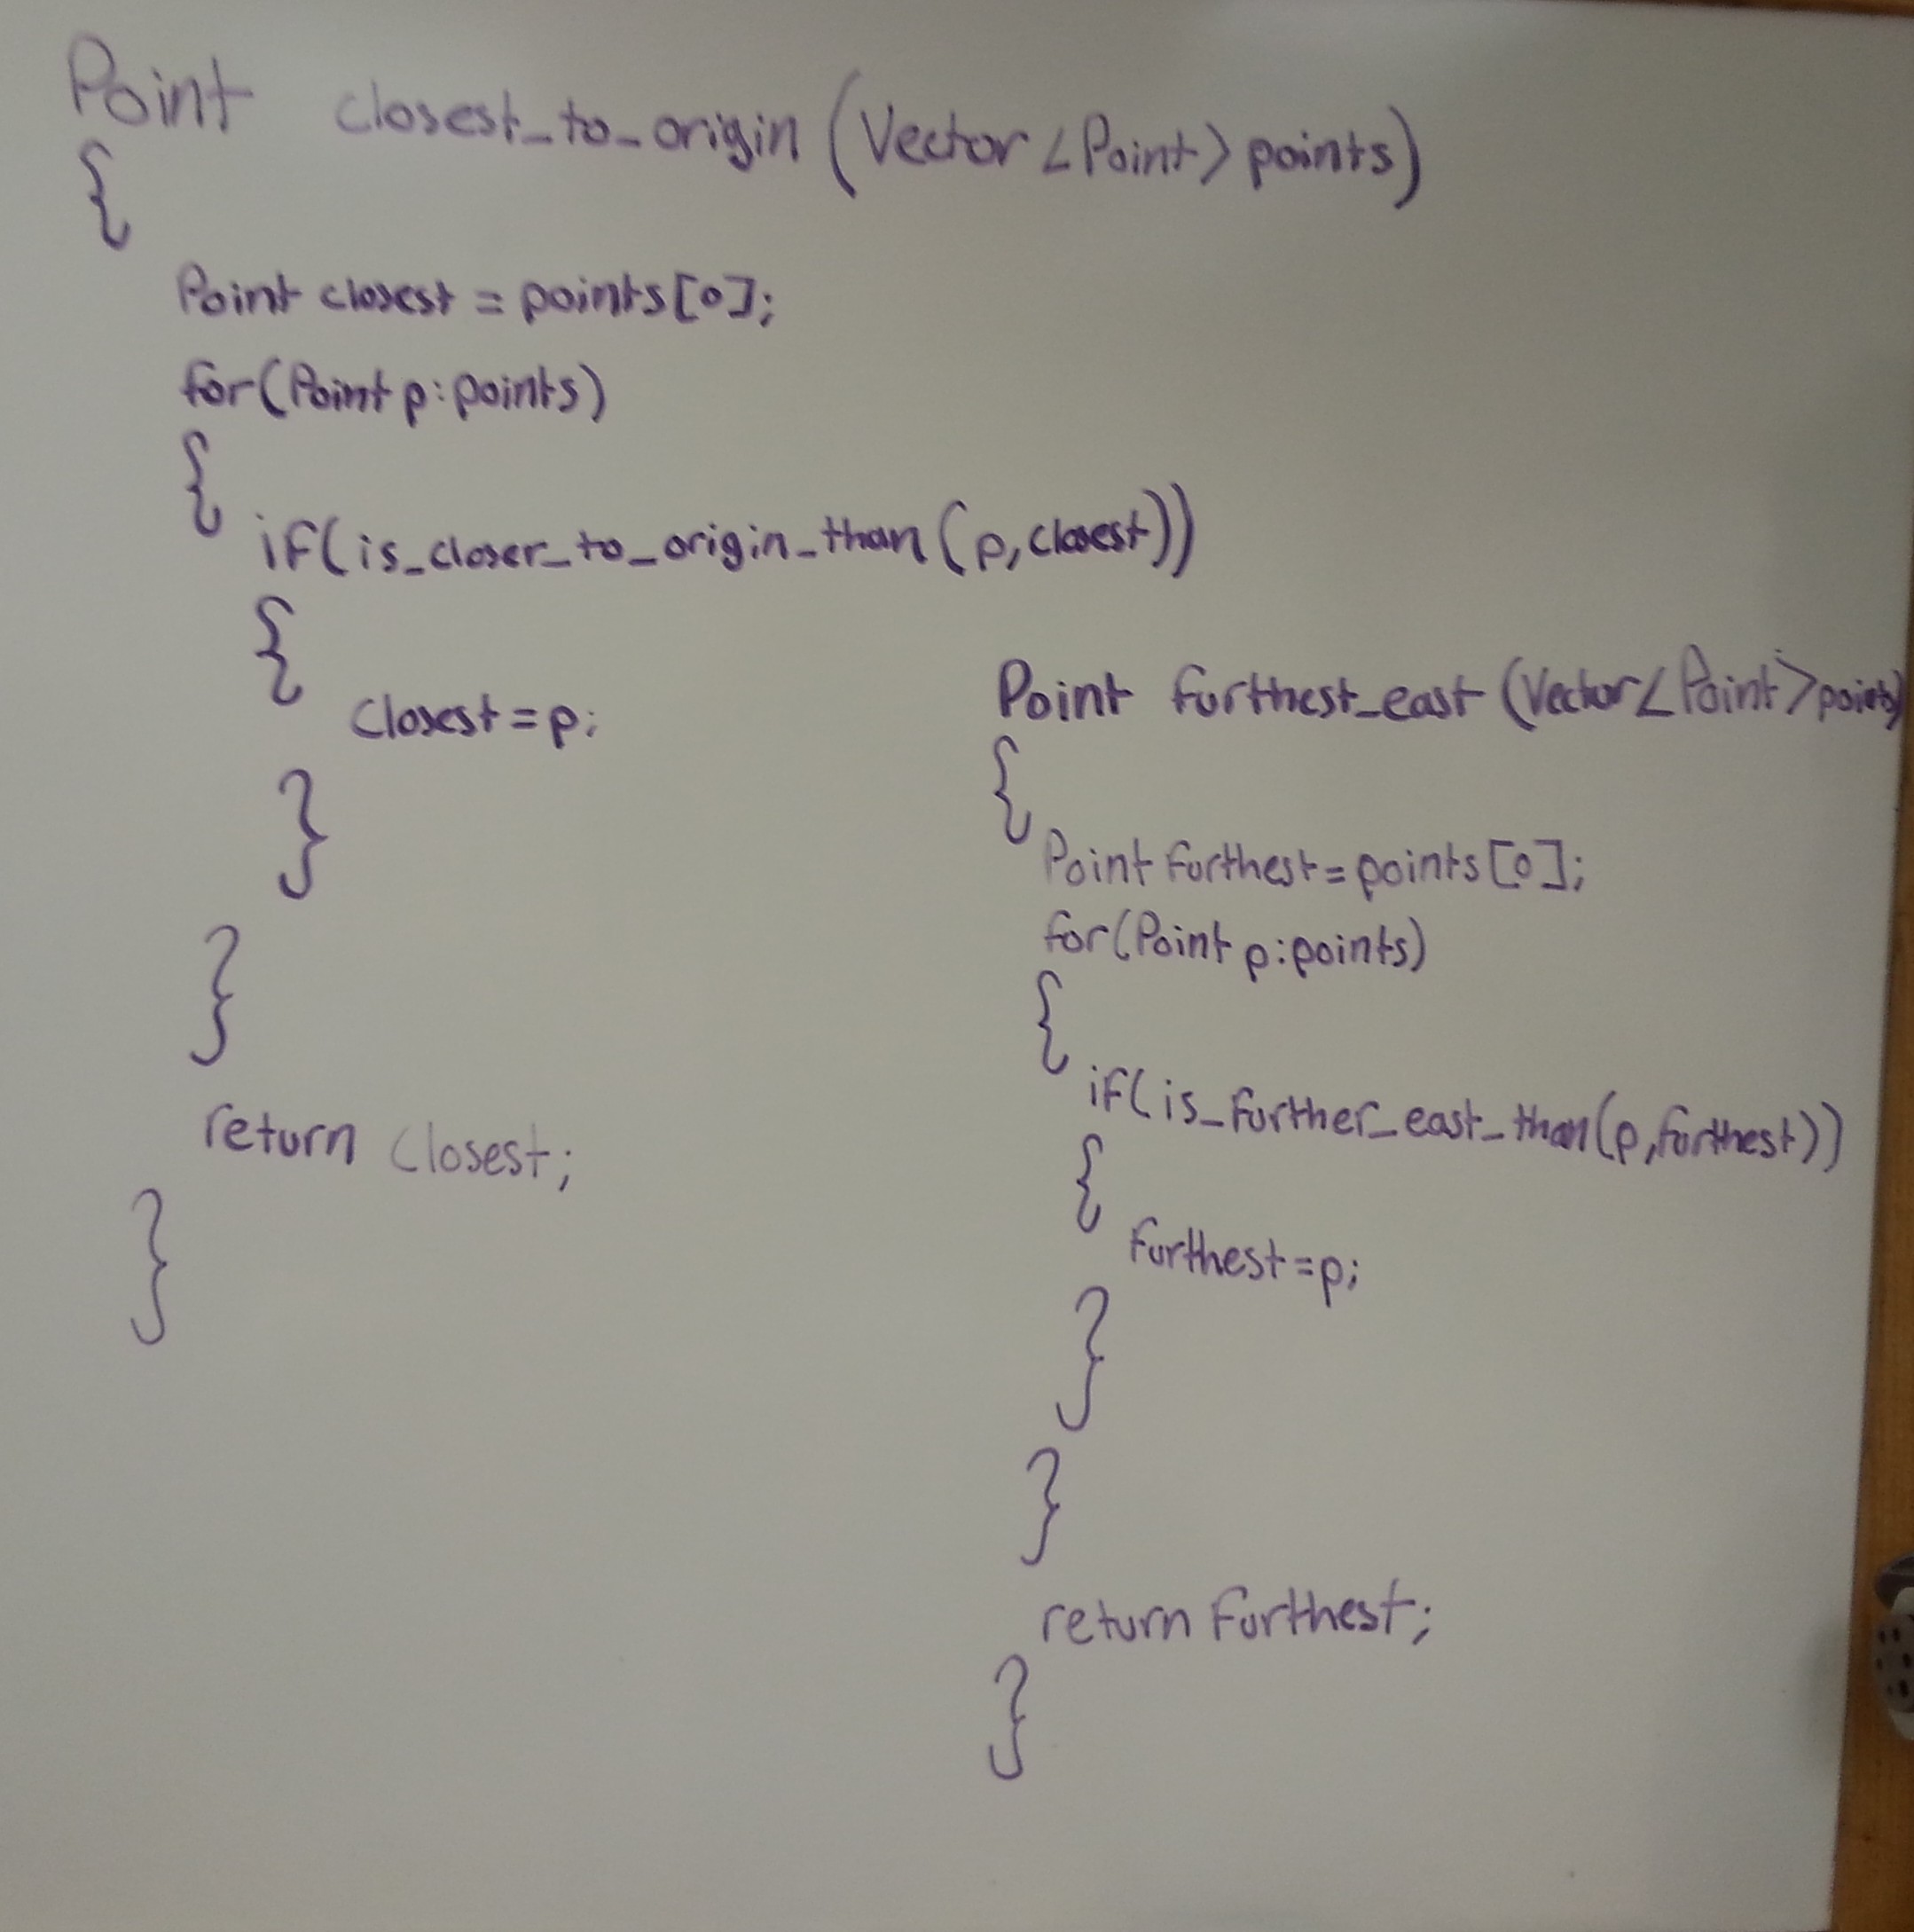 Point closest_to_origin (Vector<Point> points)
{
Point closest = points[0];
for(Point p:points)
{
if(is_closer_to_origin_than(p,closest))
{
closest=p;
}
}
return closest;
}
Point furthest_east (Vector<Point>points)
{
Point furthest=points[0];
for(Point p:points)
{
if(is_further_east_than(p,furthest))
{
furthest=p;
}
}
return furthest;
}